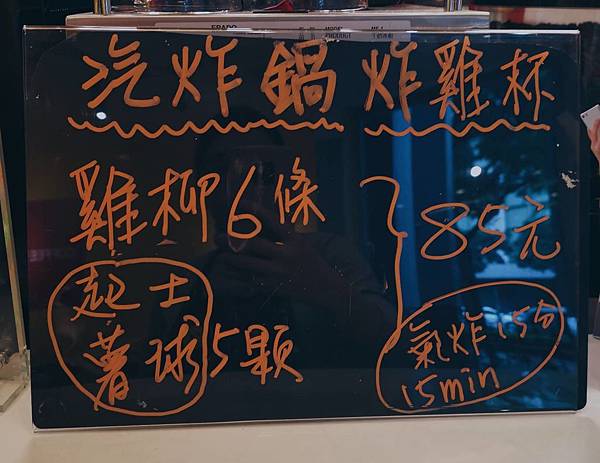 汽炸鍋 炸雞杯
雞柳6條
起士
薯球5顆
85元
氣炸15分
15min